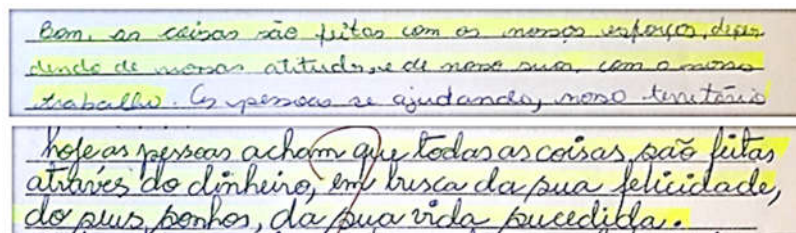 Bom, as coisas são feitas com os nossos esforços, depen
dendo de nossas atitudes, e de noso suor, com o nosso
trabalho. As pessoas se ajudando, noso território
hoje as pessoas acham que todas as coisas, são feitas
através do dinheiro, em busca da sua felicidade,
do seus sonhos, da sua vida sucedida.